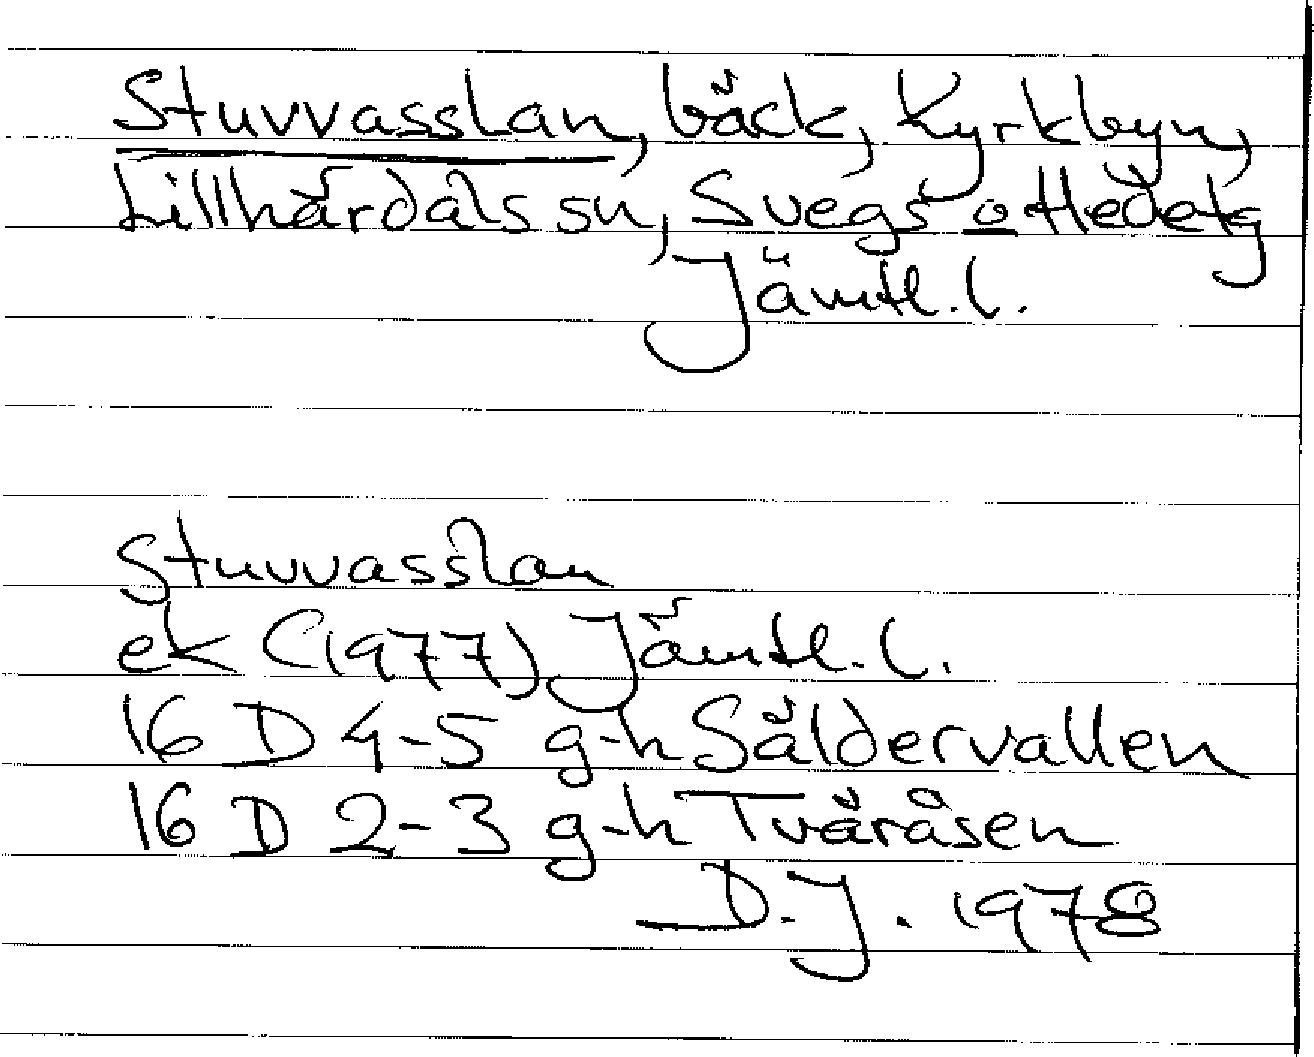 Stuvvasslan, bäck, Kyrkbyn,
Lillhärdals sn, Svegs o Hede tg
Jämtl. l.
Stuvvasslan
ek (1977) Jämtl. l.
16 D 4-5 g-h Säldervallen
16 D 2-3 g-h Tväråsen
D.J. 1978